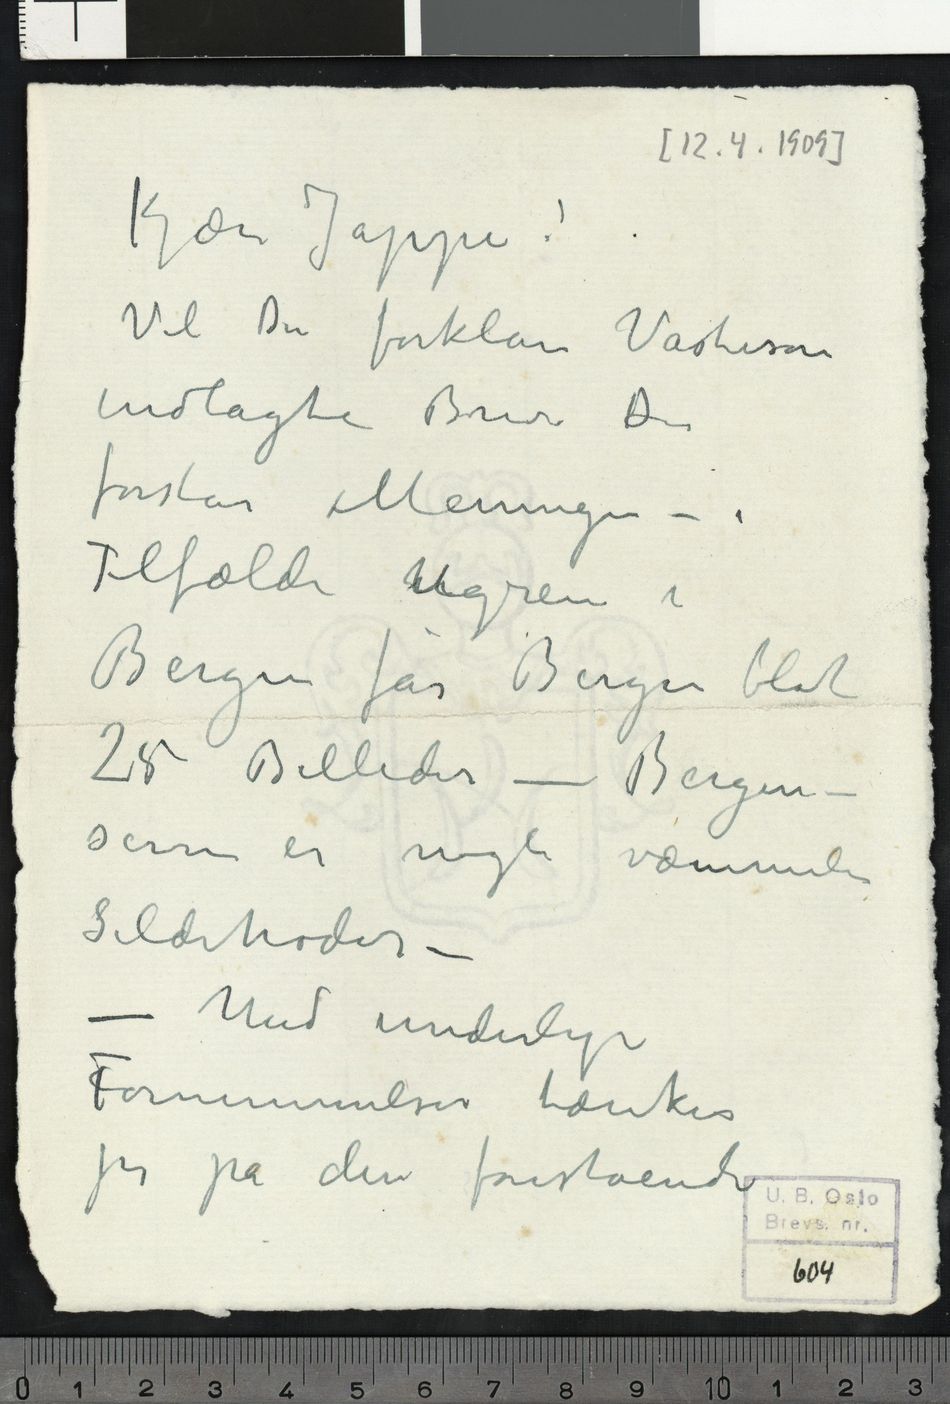 [12.4.1909]
Kjære Jappe!
Vil Du forklare
indlagte Brev. Du
forstår Meningen – i
Tilfælde Ugreie i
Bergen får Bergen blot
25 Billeder — Bergen–
serne er nogle væmmelige
Sildehoder –
— Med underlige
Fornemmelser tænker
jeg på den forestående
U. B. Oslo
Brevs. nr.
604
0 1 2 3 4 5 6 7 8 9 10 1 2 3